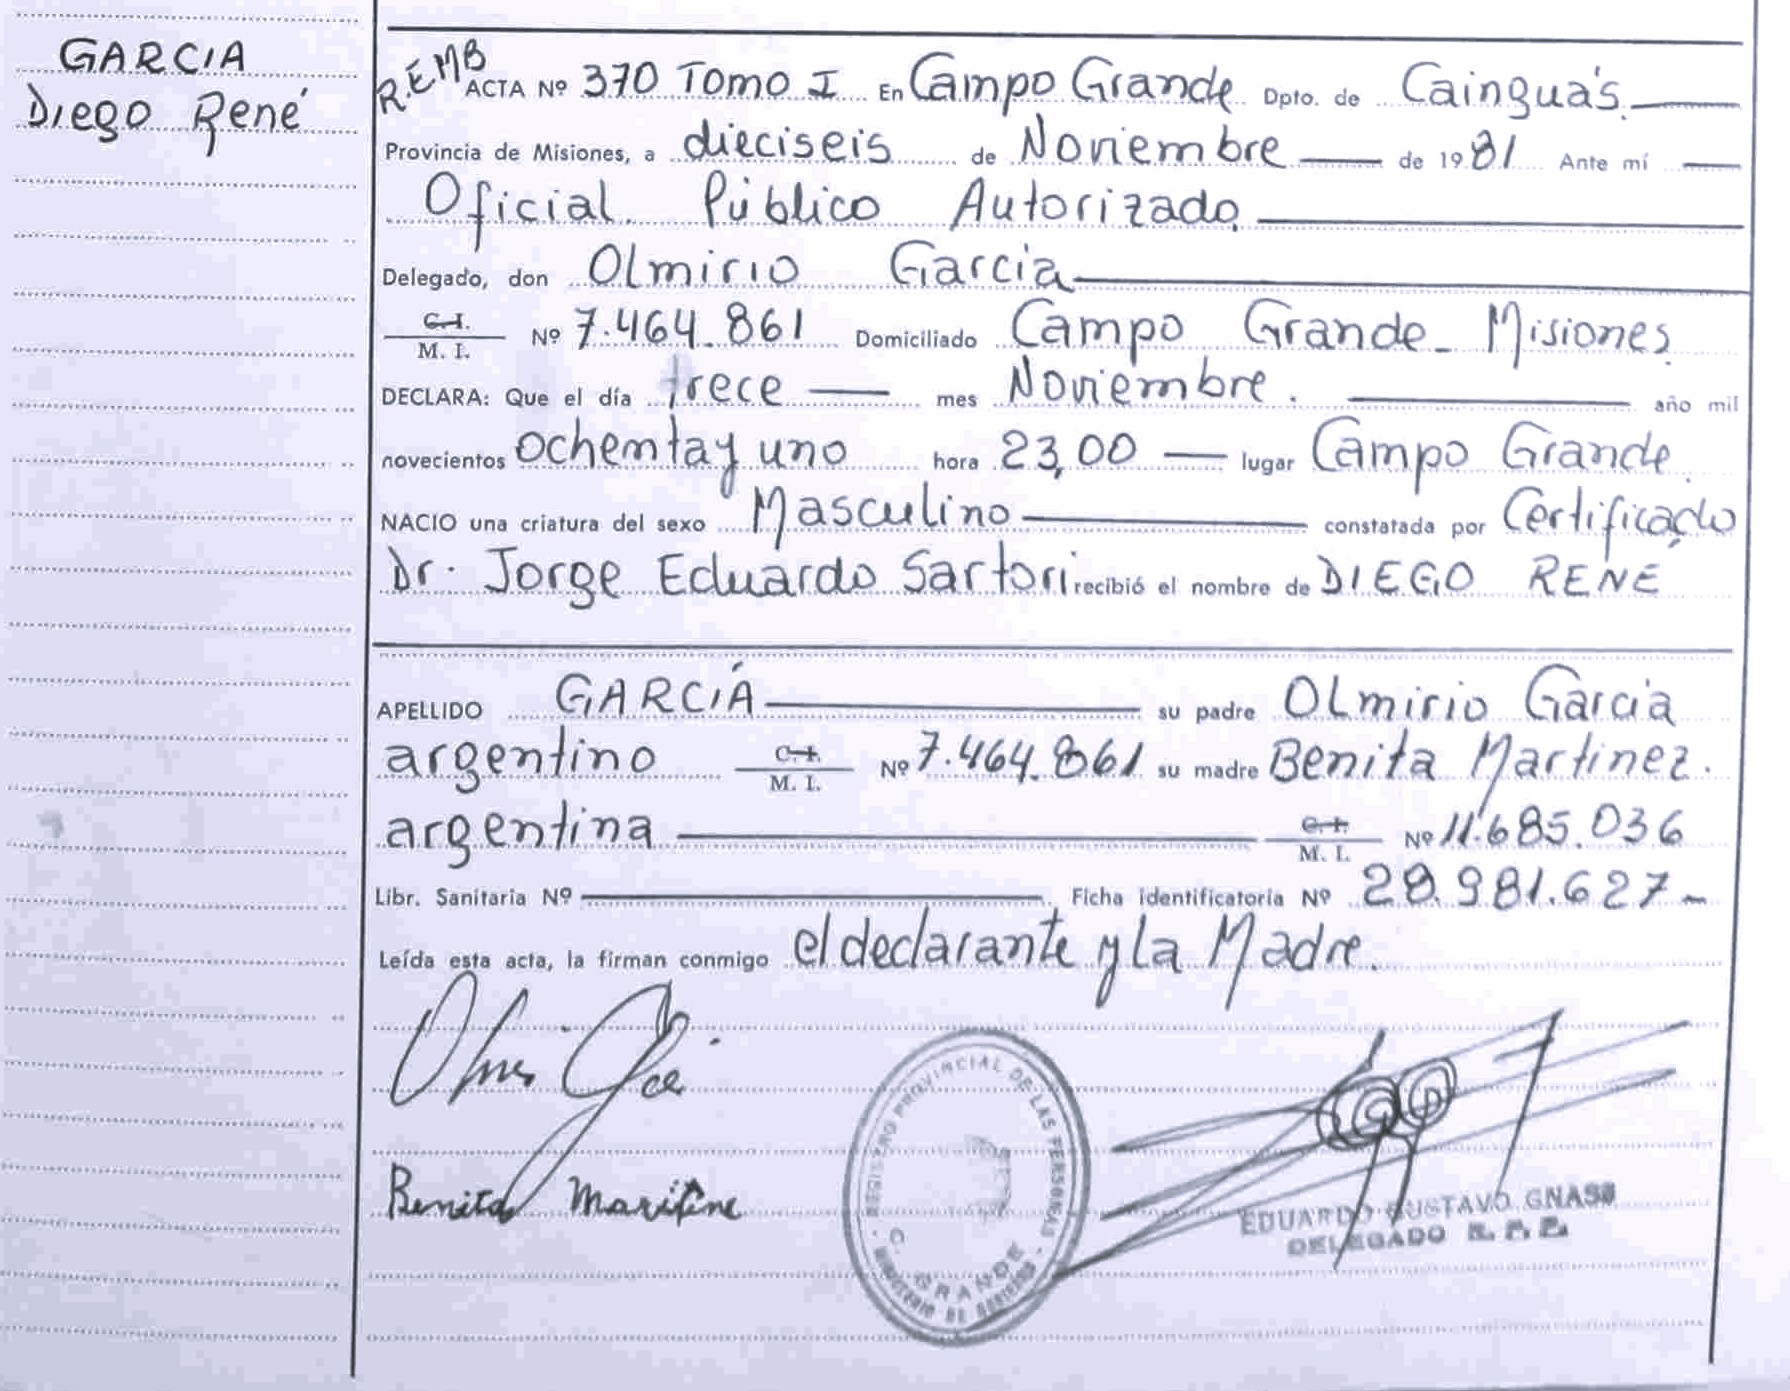 GARCIA
Diego René
R.E MB
ACTA Nº 370 Tomo I En Campo Grande Dpto. de Cainguás.
Provincia de Misiones, a dieciseis de Noviembre de 1981 Ante mí
Oficial Público Autorizado.
Delegado, don Olmirio Garcia
C.I. M. I. Nº 7.464.861 Domiciliado Campo Grande - Misiones
DECLARA: Que el día trece mes Noviembre. año mil
novecientos ochenta y uno hora 23,00 lugar Campo Grande.
NACIO una criatura del sexo Masculino constatada por Certificado
Dr. Jorge Eduardo Sartori recibió el nombre de DIEGO RENÉ
APELLIDO GARCÍA su padre Olmirio Garcia
argentino C.I. M. I. Nº 7.464.861 su madre Benita Martinez.
argentina C.I. M. I. Nº 11.685.036
Libr. Sanitaria Nº Ficha identificatoria Nº 28.981.627-
Leída esta acta, la firman conmigo el declarante y la Madre.
Benita
REGISTRO PROVINCIAL DE LAS PERSONAS
C. GRANDE
MINISTERIO DE GOBIERNO
EDUARDO GUSTAVO GNASS
DELEGADO R. P. P.